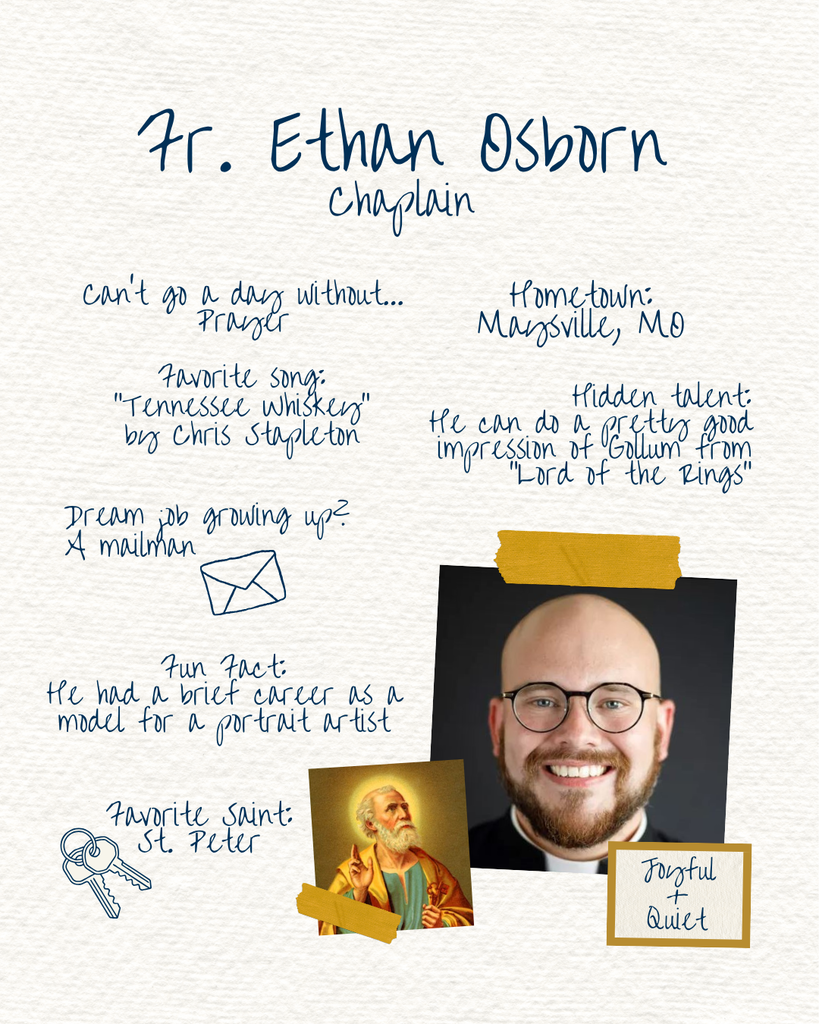 Fr. Ethan Osborn
Chaplain
Can't go a day without...
Prayer
Hometown:
Maysville, MO
Favorite song:
"Tennessee Whiskey"
by Chris Stapleton
Hidden talent:
He can do a pretty good
impression of Gollum from
"Lord of the Rings"
Dream job growing up?
A mailman
Fun Fact:
He had a brief career as a
model for a portrait artist
Favorite Saint:
St. Peter
Joyful
+
Quiet